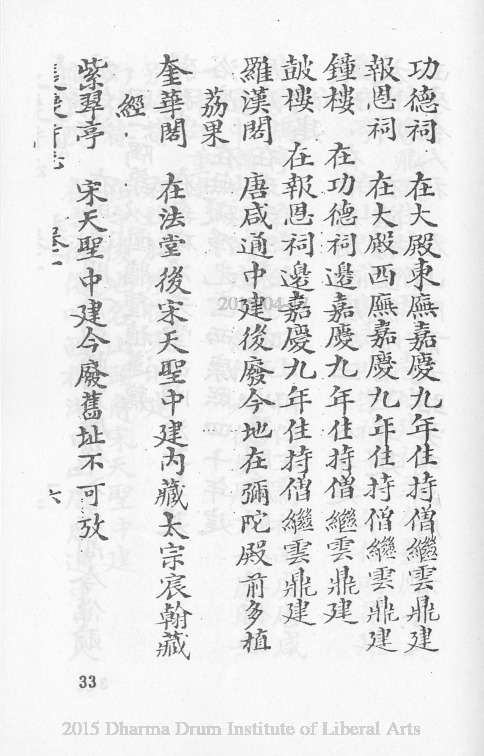 功德祠　在大殿東廡嘉慶九年住持僧繼雲鼎建
報恩祠　在大殿西廡嘉慶九年住持僧繼雲鼎建
鐘樓　在功德祠邊嘉慶九年住持僧繼雲鼎建
皷樓　在報恩祠邊嘉慶九年住持僧繼雲鼎建
羅漢閣　唐咸通中建後廢今地在彌陀殿前多植
荔果
奎華閣　在法堂後宋天聖中建內藏太宗宸翰藏
經
紫翠亭　宋天聖中建今廢舊址不可攷
卷一
六
33
2015 Dharma Drum Institute of Liberal Arts